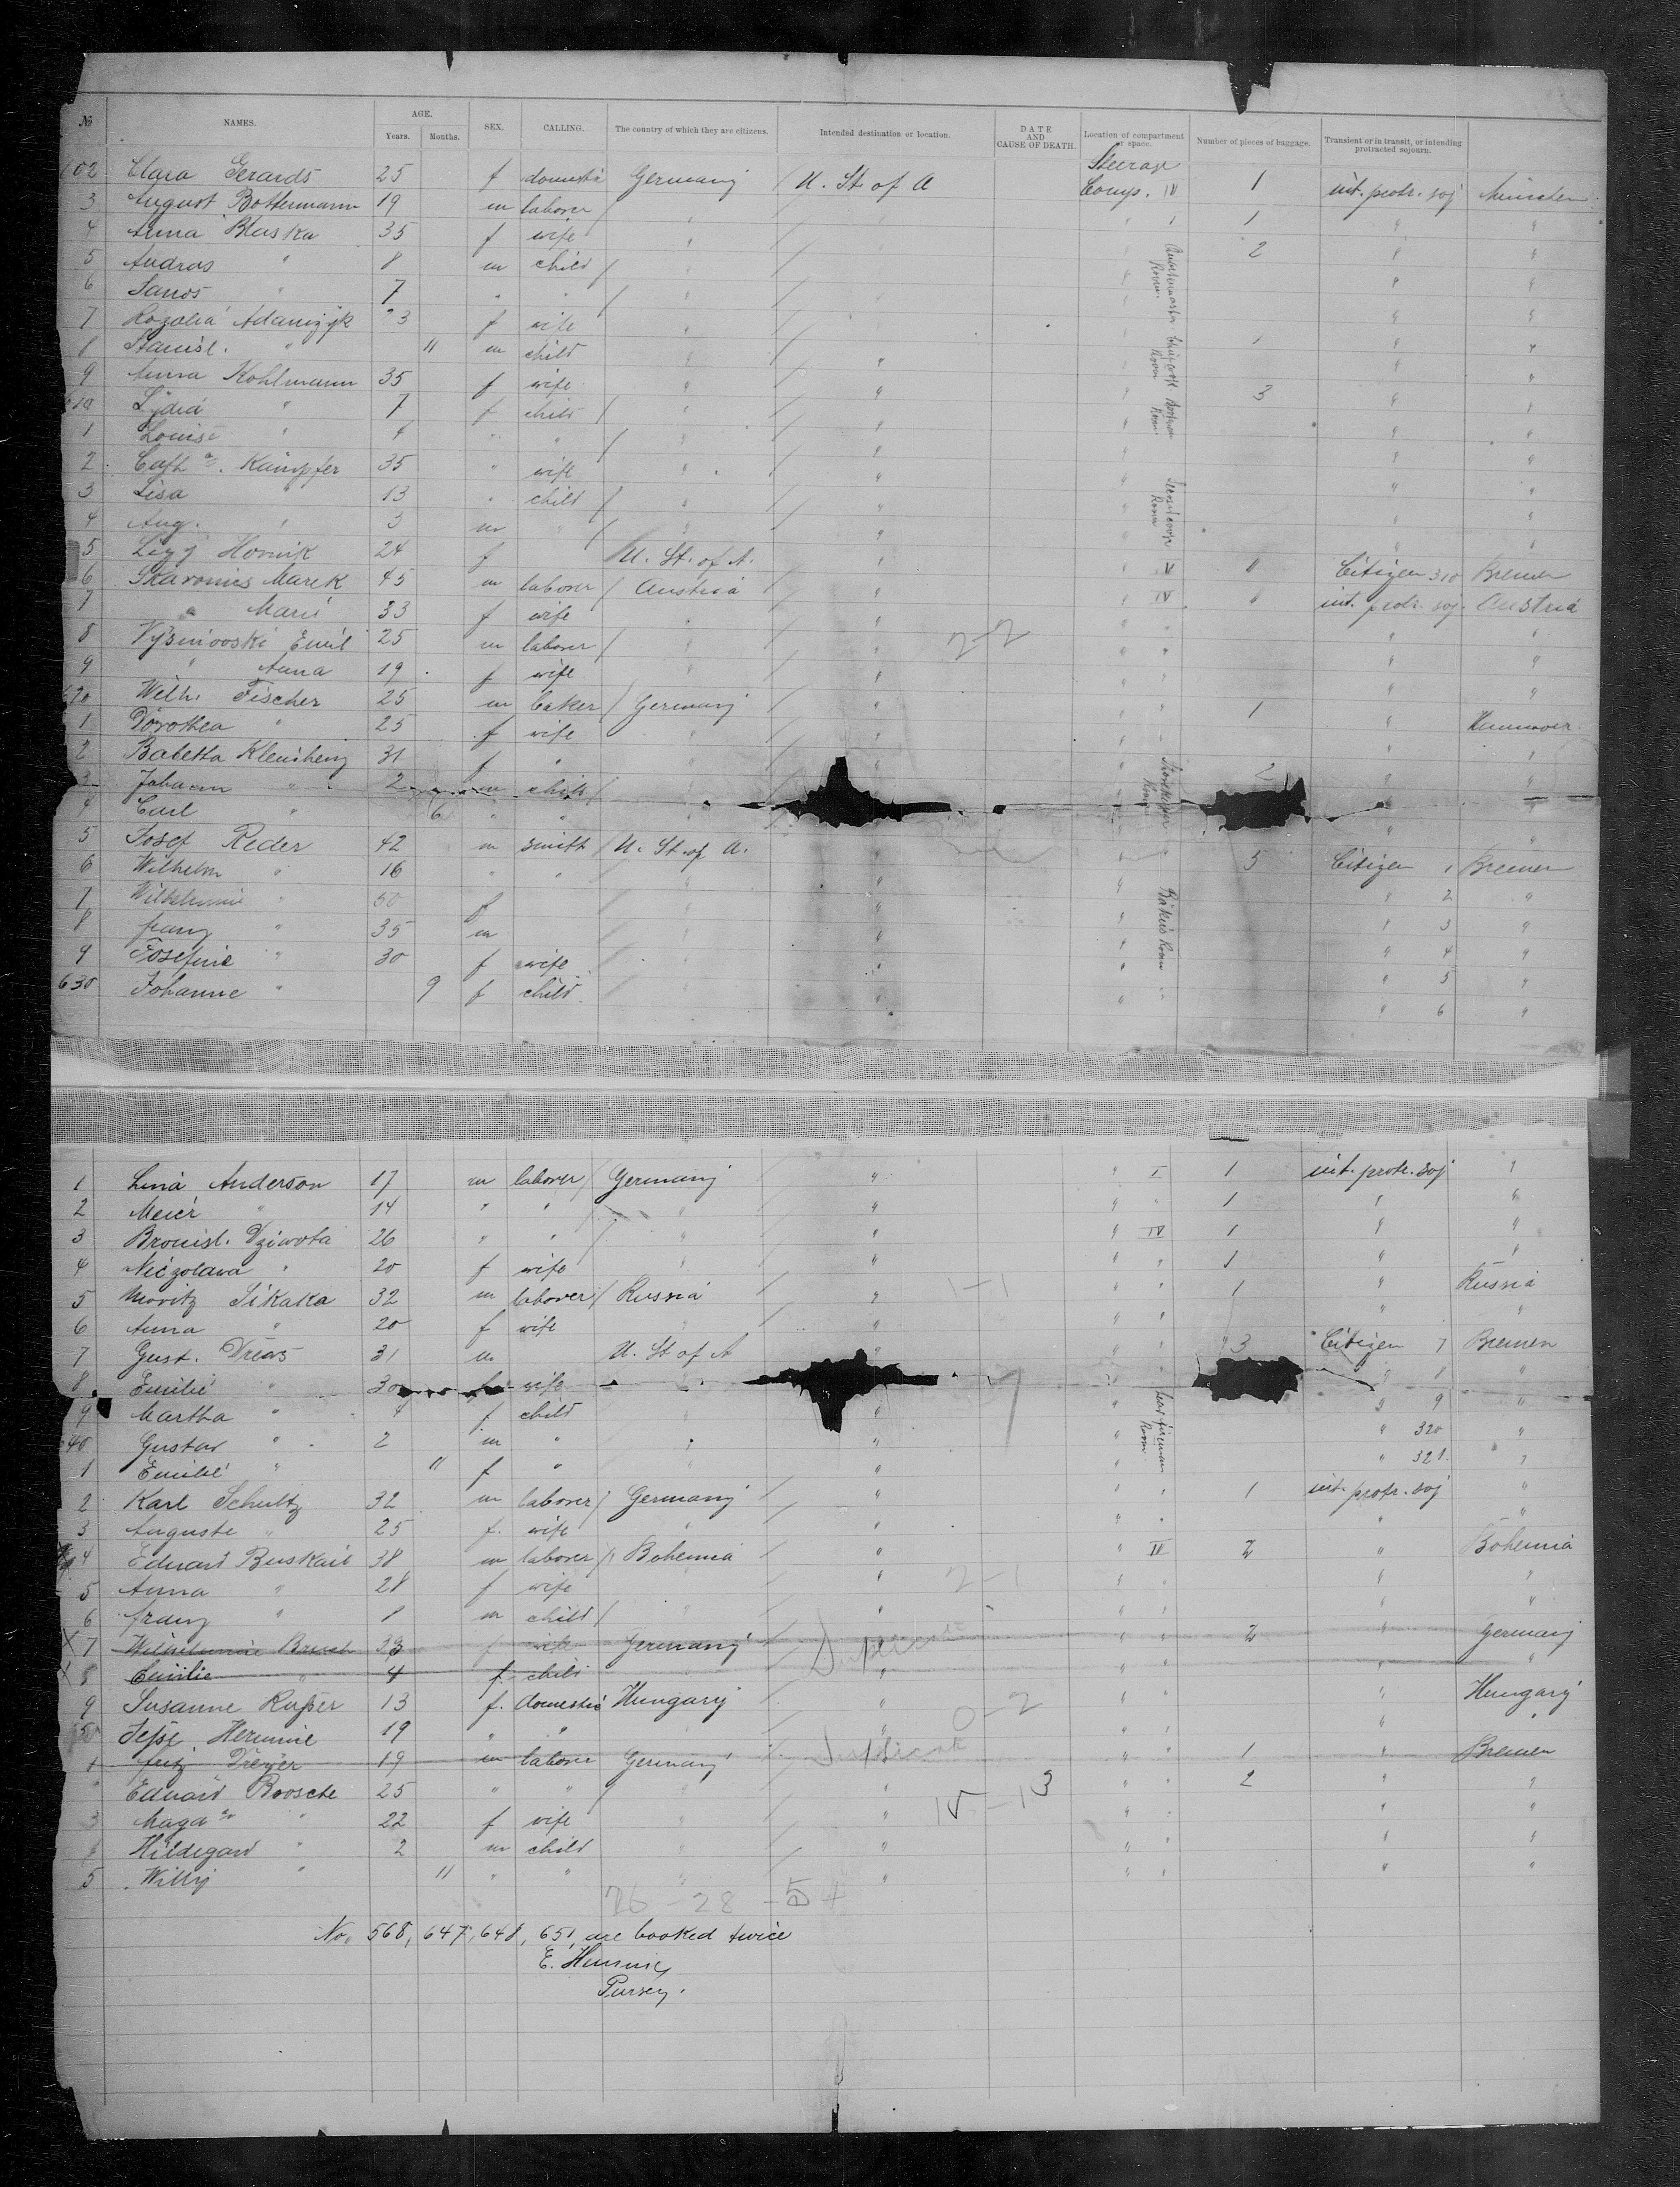 № NAMES. AGE. Years. Months. SEX. CALLING. The country of which they are citizens. Intended destination or location. DATE AND CAUSE OF DEATH. Location of compartment or space. Number of pieces of baggage. Transient or in transit, or intending protracted sojourn.
602 Clara Gerards 25 f domestic Germany / U. St. of A Steerage Comp. IV 1 int. protr. soj München
3 August Bottermann 19 m laborer " / " " 1 " "
4 Anna Bluska 35 f wife " / " 2 " "
5 Andras " 8 m child / " / " " "
6 Janos " 7 " " / " / " " "
7 Rozalia Adamizyk 23 f wife " / " " "
8 Stanisl. " 11 m child " / " 1 " "
9 Anna Kohlmann 35 f wife " / " " 3 " "
610 Lydia " 7 f child / " / " " " "
1 Louise " 4 " " / " / " " " "
2 Cath a. Kämpfer 35 " wife " / " " " "
3 Lisa " 13 " child / " / " " " "
4 Aug. " 3 m " / " / " " " "
5 Lizzy Hornik 24 f U. St. of A. " " " Citizen 310 Bremen
6 Skaronies Marek 45 m laborer / Austria / " " IV " int. protr. soj. Austria
7 " Marie 33 f wife " / " " " " "
8 Vysniovski Emil 25 m laborer / " / " 2-2 " " " "
9 " Anna 19 f wife " / " " " " "
620 Wilh. Fischer 25 m baker / Germany / " " " 1 " Hannover
1 Dorothea " 25 f wife " / " " " " "
2 Babetta 31 f " " / " " 2 " "
3 Johann " 2 m child / " "
4 Carl " 6 " " " "
5 Josef Reder 42 m smith / U. St. of A. " " 5 Citizen 1 Bremen
6 Wilhelm " 16 " " " " " " 2 "
7 Wilhelmine " 50 f " " " " 3 "
8 Franz " 35 m " " " " 4 "
9 Josefine " 30 f wife " " " " 5 "
630 Johanne " 9 f child " " " " 6 "
Quartermaster Room
Boatsmen Room
Storekeeper Room
Bakers Room
1 Lina Anderson 17 m laborer / Germany / " " I 1 int. protr. soj "
2 Meier " 14 " " / " / " " " 1 " "
3 Bronisl. Dziwota 26 " " / " / " " IV 1 " "
4 Niczolawa " 20 f wife " / " " " 1 " "
5 Moritz Sikaka 32 m laborer / Russia / " 1-1 " " 1 " Russia
6 Anna " 20 f wife " / " " " " "
7 Gust. Drews 31 m U. St of A " " " 3 Citizen 7 Bremen
8 Emilie " 30 f wife " " " 8 "
9 Martha " 4 f child " " " " 9 "
640 Gustav " 2 m " " " " " 320 "
1 Emilie " 11 f " " " " " 321. "
2 Karl Schultz 32 m laborer / Germany / " " " 1 int. protr. soj "
3 Auguste " 25 f. wife " / " " " " "
4 Eduard Buskail 38 m laborer / Bohemia / " " IV 2 " Bohemia
5 Anna " 28 f wife " / " 2-1 " " " "
6 Franz " 8 m child / " / " " " " "
X 7 Wilhelmine Brusch 33 f wife Germany Duplicate " " 2 " Germany
X 8 Emilie " 4 f. child " " " " " "
9 Susanne Ruper 13 f. domestic Hungary / " 0-2 " " " Hungary
650 Hermine 19 " " " / " " " " "
1 Fritz Dreyer 19 m laborer Germany Duplicate " " 1 " Bremen
" Eduard Boosche 25 " " " / " " " 2 " "
3 Magd a. " 22 f wife " / " " " " "
4 Hildegard " 2 m child " / " " " " "
5 Willy " 11 " " " / " " " " "
Room
26 - 28 - 54
No. 568, 647, 648, 651, are booked twice
E.
Purser.